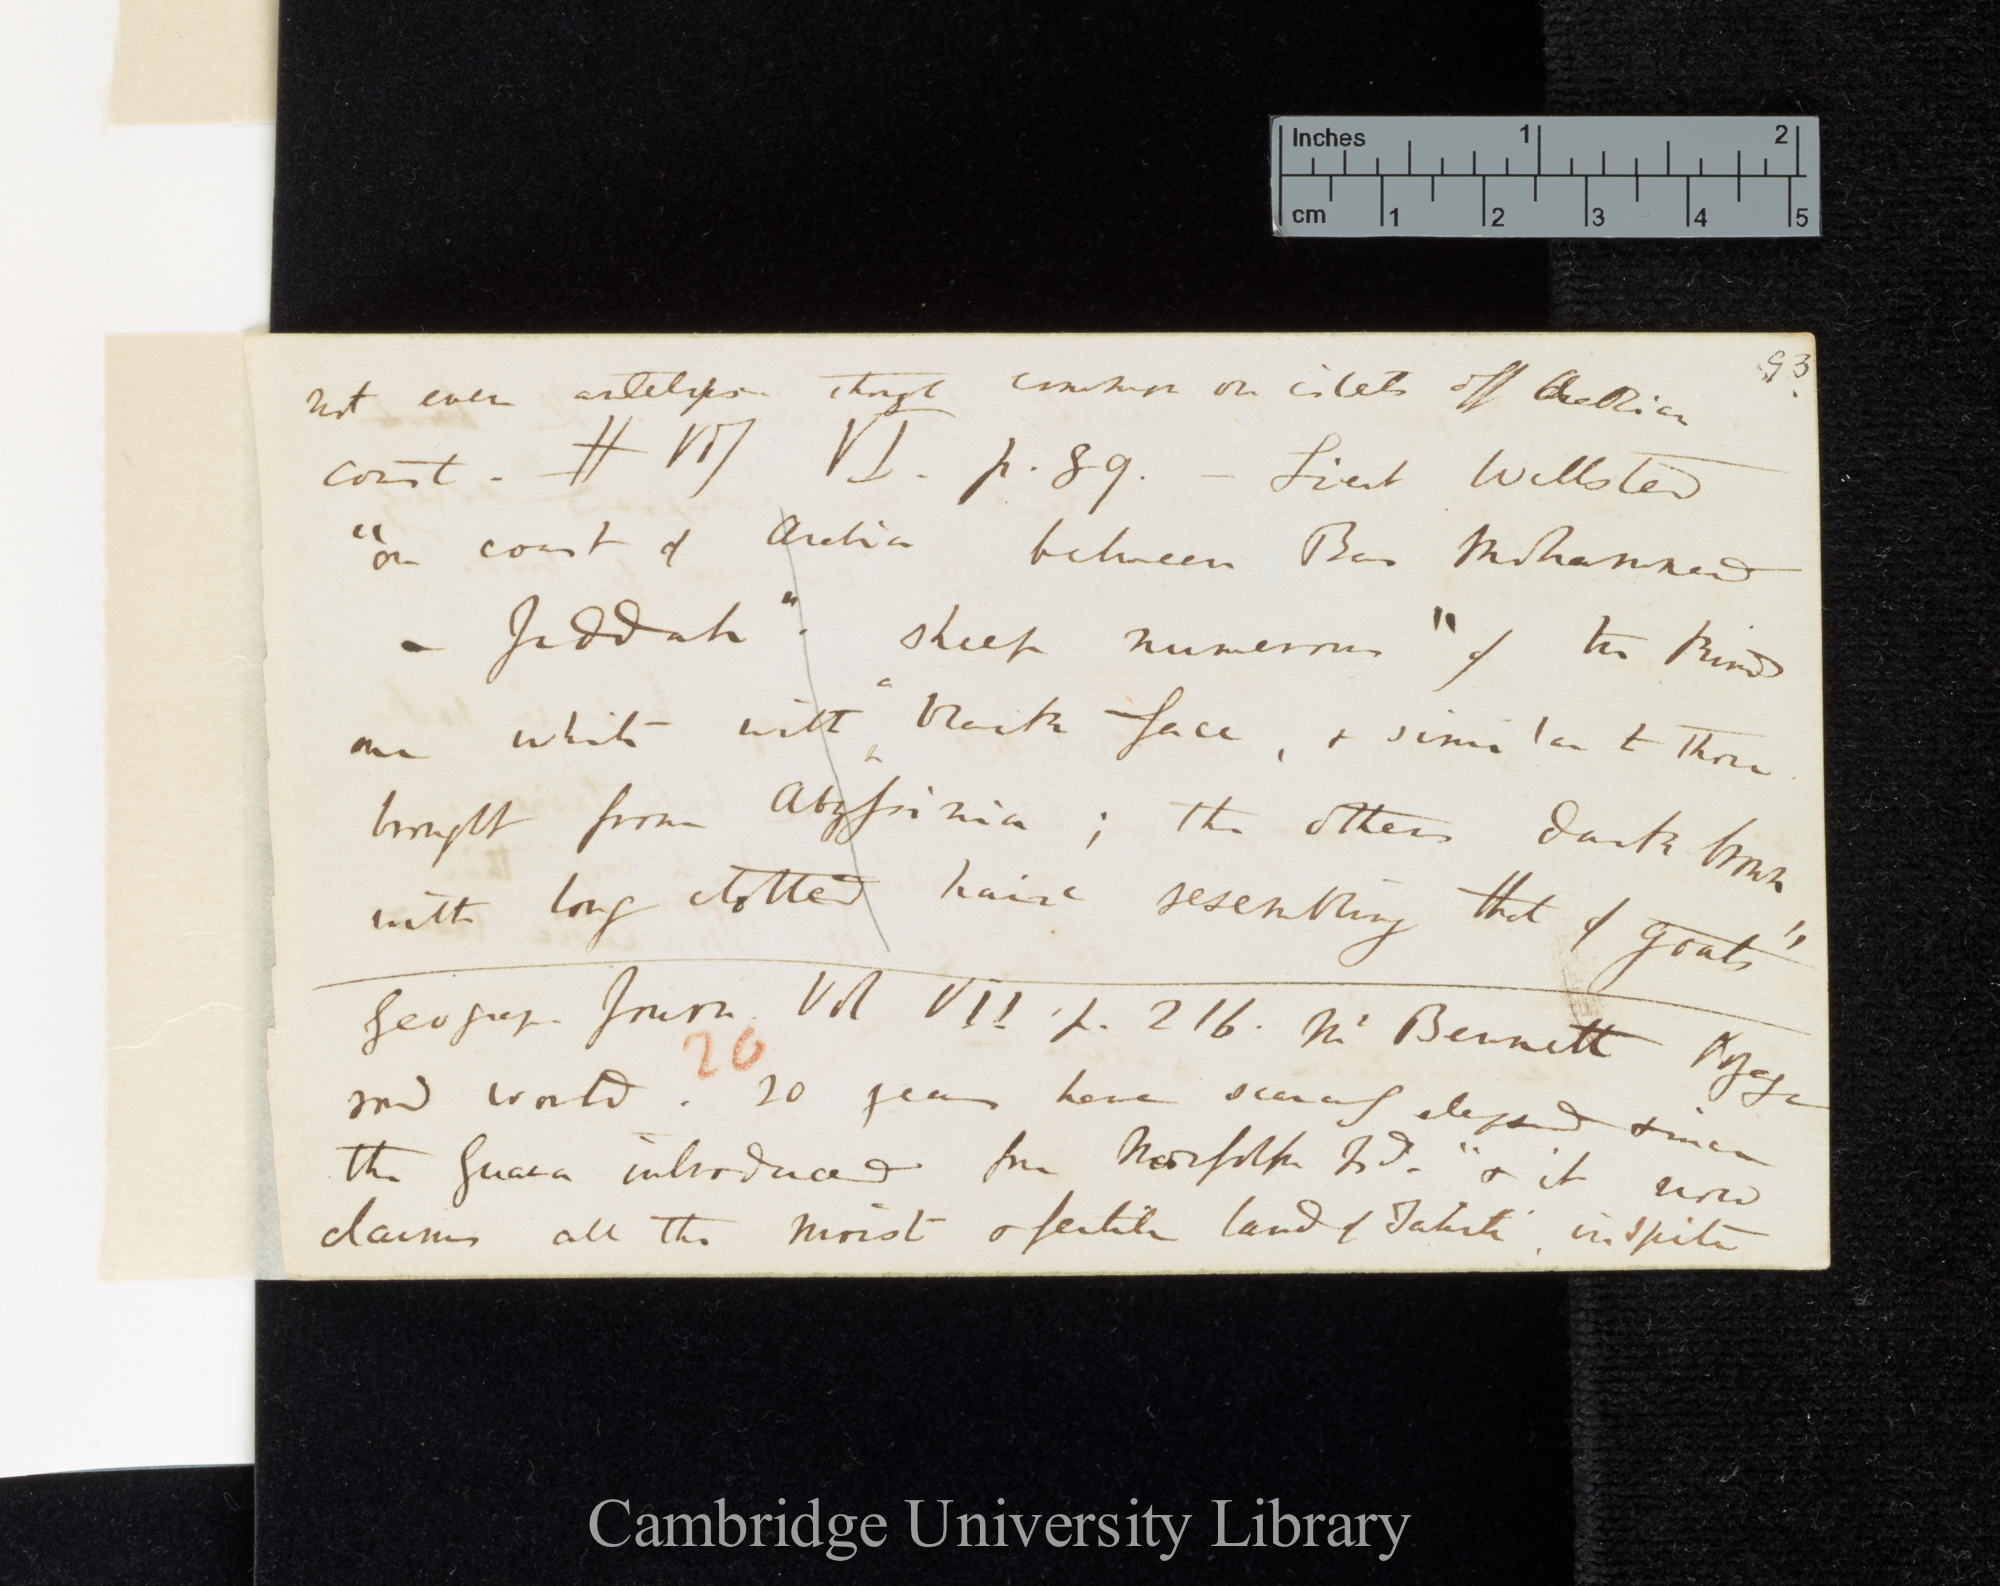 Inches 1 2
cm 1 2 3 4 5
93
not even antelopes though common on islets off Arabian
coast. — # Vol VI. p. 89. — Lieut Wellsted
"on coast of Arabia between Ras Mohammed
& Jeddah". sheep numerous "of two kinds
one white with "black face, & similar to those
brought from Abyssinia; the others dark brown
with long clotted hair resembling that of goats"
Geograp. Journ. Vol VII. p. 216. Mr Bennett Voyage
20
rnd world. 20 years have scarcely elapsed since
the Guava introduced from Norfolk Isd. "& it now
claims all the moist & fertile land of Tahiti, in spite
Cambridge University Library